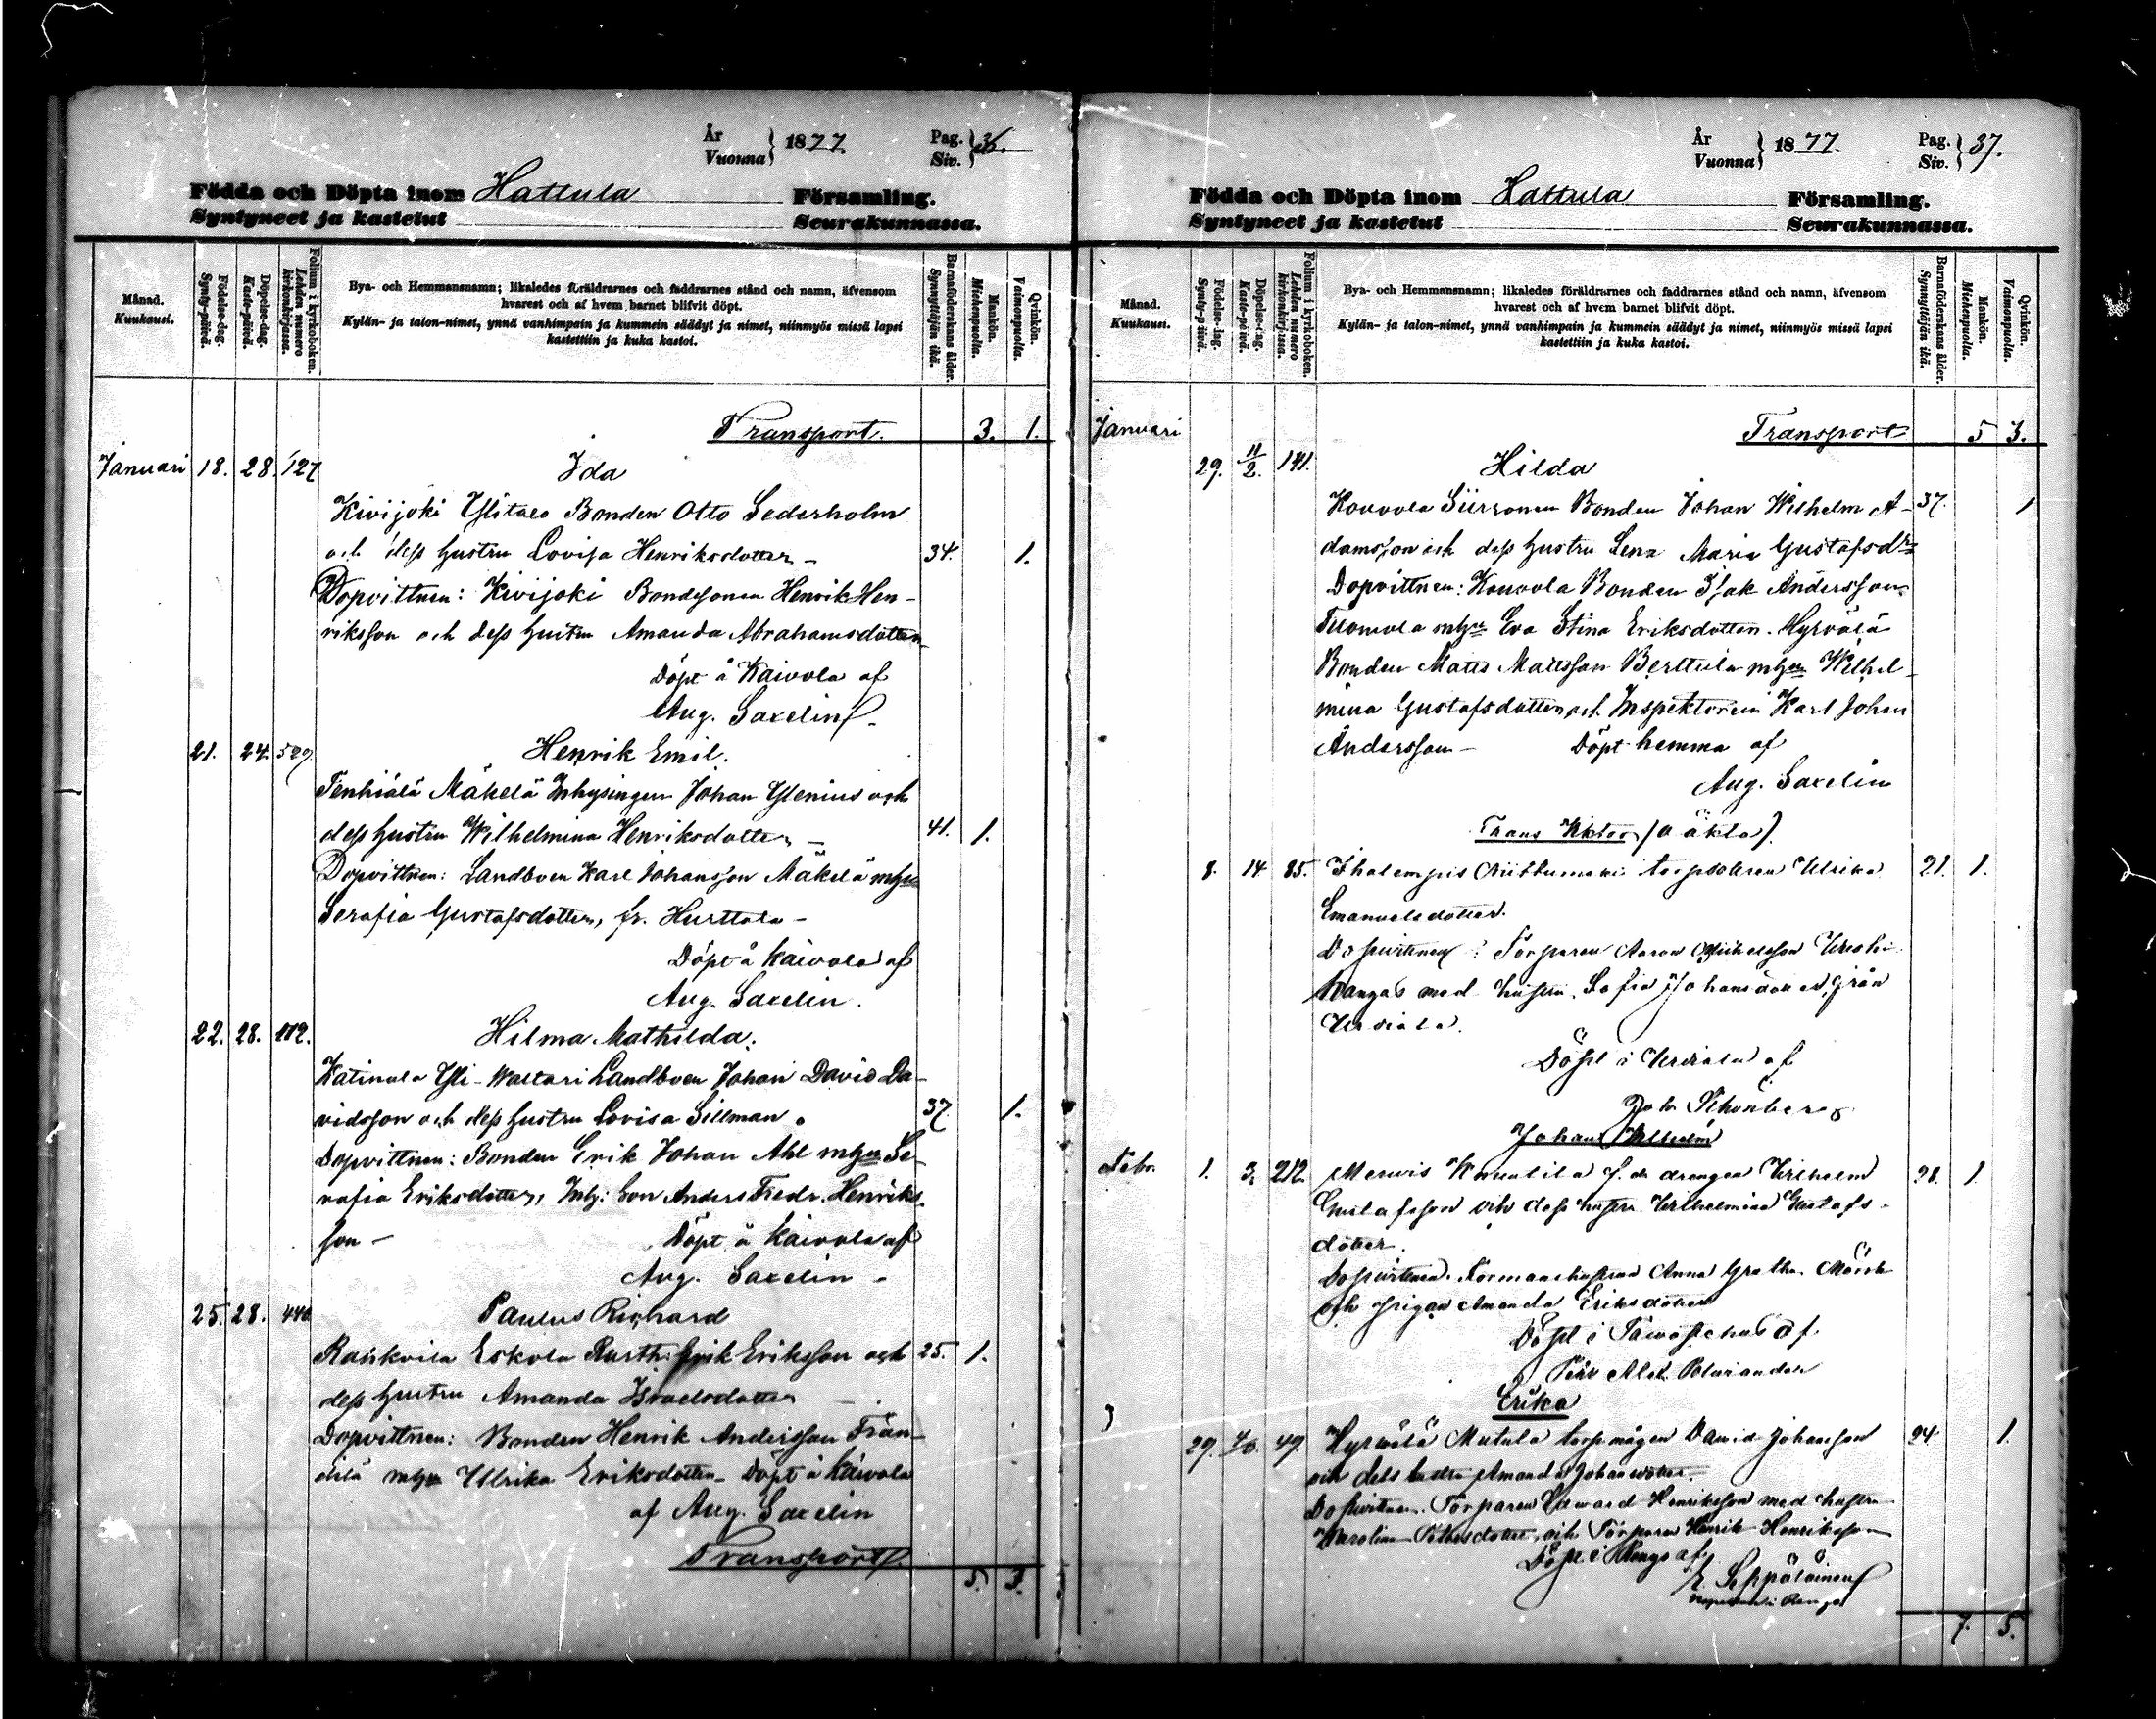 År
Vuonna } 1877. Pag.
Siv. } 36.
Födda och Döpta inom Hattula Församling.
Syntyneet ja kastetut Seurakunnassa.
Månad.
Kuukausi.
Födelse-dag.
Synty-päivä.
Döpelse-dag.
Kaste-päivä.
Folium i kyrkoboken.
Lehden numero
kirkonkirjassa.
Bya- och Hemmansnamn; likaledes föräldrarnes och faddrarnes stånd och namn, äfvensom
hvarest och af hvem barnet blifvit döpt.
Kylän- ja talon-nimet, ynnä vanhimpain ja kummein säädyt ja nimet, niinmyös missä lapsi
kastettiin ja kuka kastoi.
Barnaföderskans ålder.
Synnyttäjän ikä.
Mankön.
Miehenpuolia.
Qvinkön.
Vaimonpuolia.
Transport. 3. 1.
Januari 18. 28. 127 Ida
Kivijoki Ylitalo Bonden Otto Sederholm
och dess hustru Lovisa Henriksdotter - 34. 1.
Dopvittnen: Kivijoki Bondesonen Henrik Hen-
riksson och dess hustru Amanda Abrahamsdotter
Döpt å Kaivola af
Aug. Saxelin
21. 24. 529. Henrik Emil.
Tenhiälä Mäkelä Inhysingen Johan Glenius och
dess hustru Wilhelmina Henriksdotter - 41. 1.
Dopvittnen: Landboen Karl Johansson Mäkelä m hu
Serafia Gustafsdotter, fr. Hurttala -
Döpt å Kaivola af
Aug. Saxelin.
22. 28. 112. Hilma Mathilda.
Katinala Yli-Waltari Landboen Johan David Da-
vidsson och dess hustru Lovisa Sillman. 37 1.
Dopvittnen: Bonden Erik Johan Ahl m hu Se-
rafia Eriksdotter, Inh: Son Anders Fredr. Henriks-
son - Döpt å Kaivola af
Aug. Saxelin -
25. 28. 440 Paulus Richard
Rahkoila Eskola Rusth: Erik Eriksson och 25. 1.
dess hustru Amanda Israelsdotter -
Dopvittnen: Bonden Henrik Andersson
m hu Ulrika Eriksdotter - Döpt å Kaivola
af Aug. Saxelin
Transport
5. 3.
År
Vuonna } 1877. Pag.
Siv. } 37.
Födda och Döpta inom Hattula Församling.
Syntyneet ja kastetut Seurakunnassa.
Månad.
Kuukausi.
Födelse-dag.
Synty-päivä.
Döpelse-dag.
Kaste-päivä.
Folium i kyrkoboken.
Lehden numero
kirkonkirjassa.
Bya- och Hemmansnamn; likaledes föräldrarnes och faddrarnes stånd och namn, äfvensom
hvarest och af hvem barnet blifvit döpt.
Kylän- ja talon-nimet, ynnä vanhimpain ja kummein säädyt ja nimet, niinmyös missä lapsi
kastettiin ja kuka kastoi.
Barnaföderskans ålder.
Synnyttäjän ikä.
Mankön.
Miehenpuolia.
Qvinkön.
Vaimonpuolia.
Januari Transport 5 3.
29. 11/2. 141. Hilda
Kouvola Siironen Bonden Johan Wilhelm A- 37. 1
damsson och dess hustru Lena Maria Gustafsdr
Dopvittnen: Kouvola Bonden Isak Andersson
Tuomola m hu Eva Stina Eriksdotter. Hyrvälä
Bonden Matts Mattsson Berttula m hu Wilhel-
mina Gustafsdotter, och Inspektoren Karl Johan
Andersson - Döpt hemma af
Aug. Saxelin
Frans Viktor (oäkta).
8. 14 85. Ihalempis torpdotteren Ulrika 21. 1.
Emanuelsdotter.
Dopvittnen: Torparen Aaron Michelsson
Kangas med hustru Sofia Johansdotter, från
Urdiala.
Döpt i Urdiala af
Joh. Schönberg
Johan Wilhelm
Febr. 1. 3. 212. Mervis Knuutila f.d. drengen Wilhelm 28. 1.
Gustafsson och dess hustru Wilhelmina Gustafs-
dotter.
Dopvittnen. Formanshustrun Anna Gretha
och pigan Amanda Eriksdotter
Döpt i Tavastehus af
Alex.
Erika
29. 49. Hyrvälä Mutula torpmågen David Johansson 24. 1.
och dess hustru Amanda Johansdotter.
Dopvittnen. Torparen Edward Henriksson med hustru
Karolina dotter, och Torparen Henrik Henriksson
Döpt i Rengo af
E. Seppäläinen
i Rengo
7. 5.